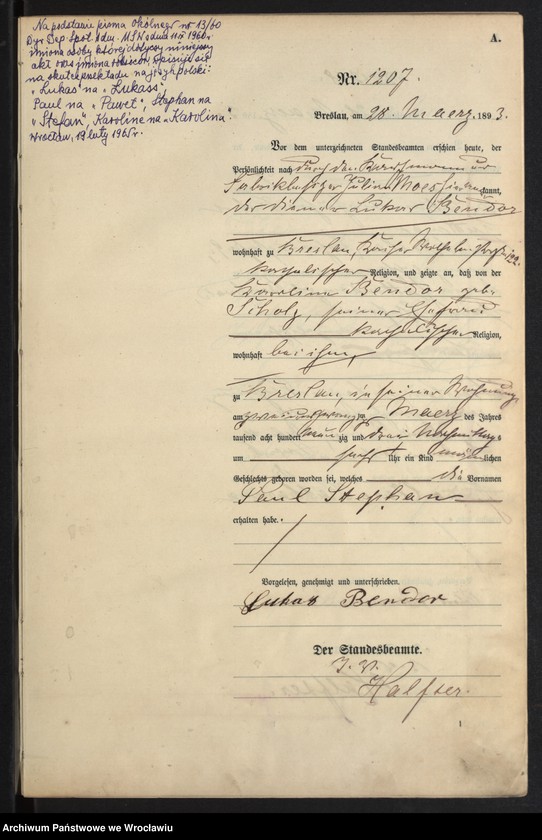 Na podstawie pisma Okólnego nr 13/60
imiona osoby, której dotyczy niniejszy
akt oraz imiona rodziców, wpisuje się
na skutek przekładu na język polski:
"Lukas" na "Łukasz"
Paul na "Paweł", Stephan na
"Stefan", Karoline na "Karolina"
Wrocław, 19 luty 1965 r.
A.
Nr. 1207.
Breslau, am 28. Maerz 1893.
Vor dem unterzeichneten Standesbeamten erschien heute, der
Persönlichkeit nach durch den Kaufmann und
Fabrikbesitzer Julian Moes kannt,
der Diener Lukas Bendor
wohnhaft zu Breslau, Kaiser Wilhelm Straße
katholischer Religion, und zeigte an, daß von der
Karoline Bendor geb.
Scholz, seiner Ehefrau
katholischer Religion,
wohnhaft bei ihm,
zu Breslau, in seiner Wohnung
am zwei und zwanzigsten Maerz des Jahres
tausend acht hundert neunzig und drei Nachmittags
um sechs Uhr ein Kind männlichen
Geschlechts geboren worden sei, welches die Vornamen
Paul Stephan
erhalten habe.
Vorgelesen, genehmigt und unterschrieben.
Lukas Bendor
Der Standesbeamte.
I. V.
Halfter.
1
Archiwum Państwowe we Wrocławiu